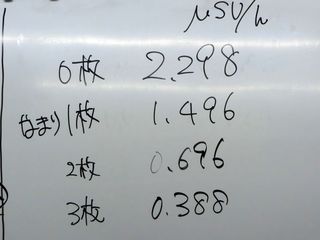 μSV/h
0枚 2.298
なまり1枚 1.496
2枚 0.696
3枚 0.388